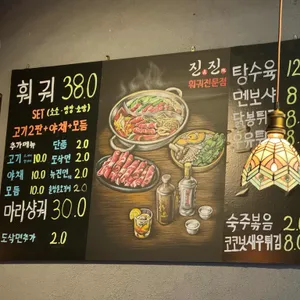 훠궈 38.0
SET
고기2판+야채+모듬
추가메뉴
단품 2.0
고기 10.0
도삭면 2.0
야채 10.0
2.0
모듬 10.0
2.0
마라샹궈 30.0
도삭면추가 2.0
진진
훠궈전문점
탕수육
멘보샤
숙주볶음 2.0
코코넛새우튀김 8.0